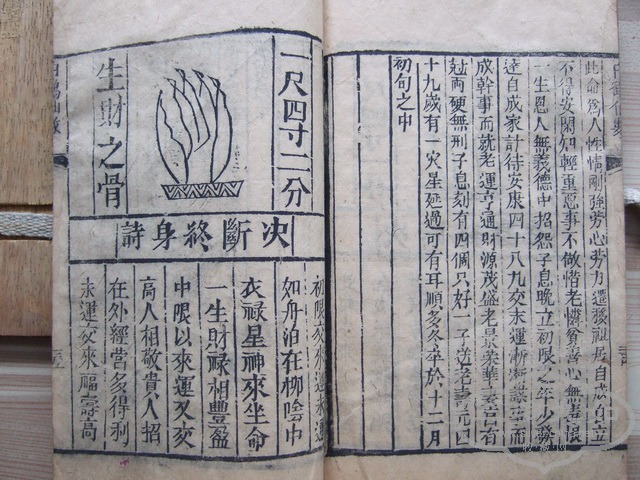 此命為人性情剛強劳心劳力遷移祖居自成自立
不得安閑知輕重惡事不做惜老憐貧善心無毒恨
一生恩人無義德中招怨子息晚立初限之年少發
達自成家計待安康四十八九交末運漸漸幸吉而
成幹事而就老運亨通財源茂盛老景榮華妻宮有
尅両硬無刑子息刻有四個只好一子送老壽元四
十九歲有一灾星延過可有耳順多冬卒於十二月
初旬之中
一尺四寸二分
生財之骨
决断終身詩
初限
如舟泊在柳陰中
衣禄星神來坐命
一生財禄相豐盈
中限以來運又交
高人相敬貴人招
在外經营多得利
末運交來福壽高